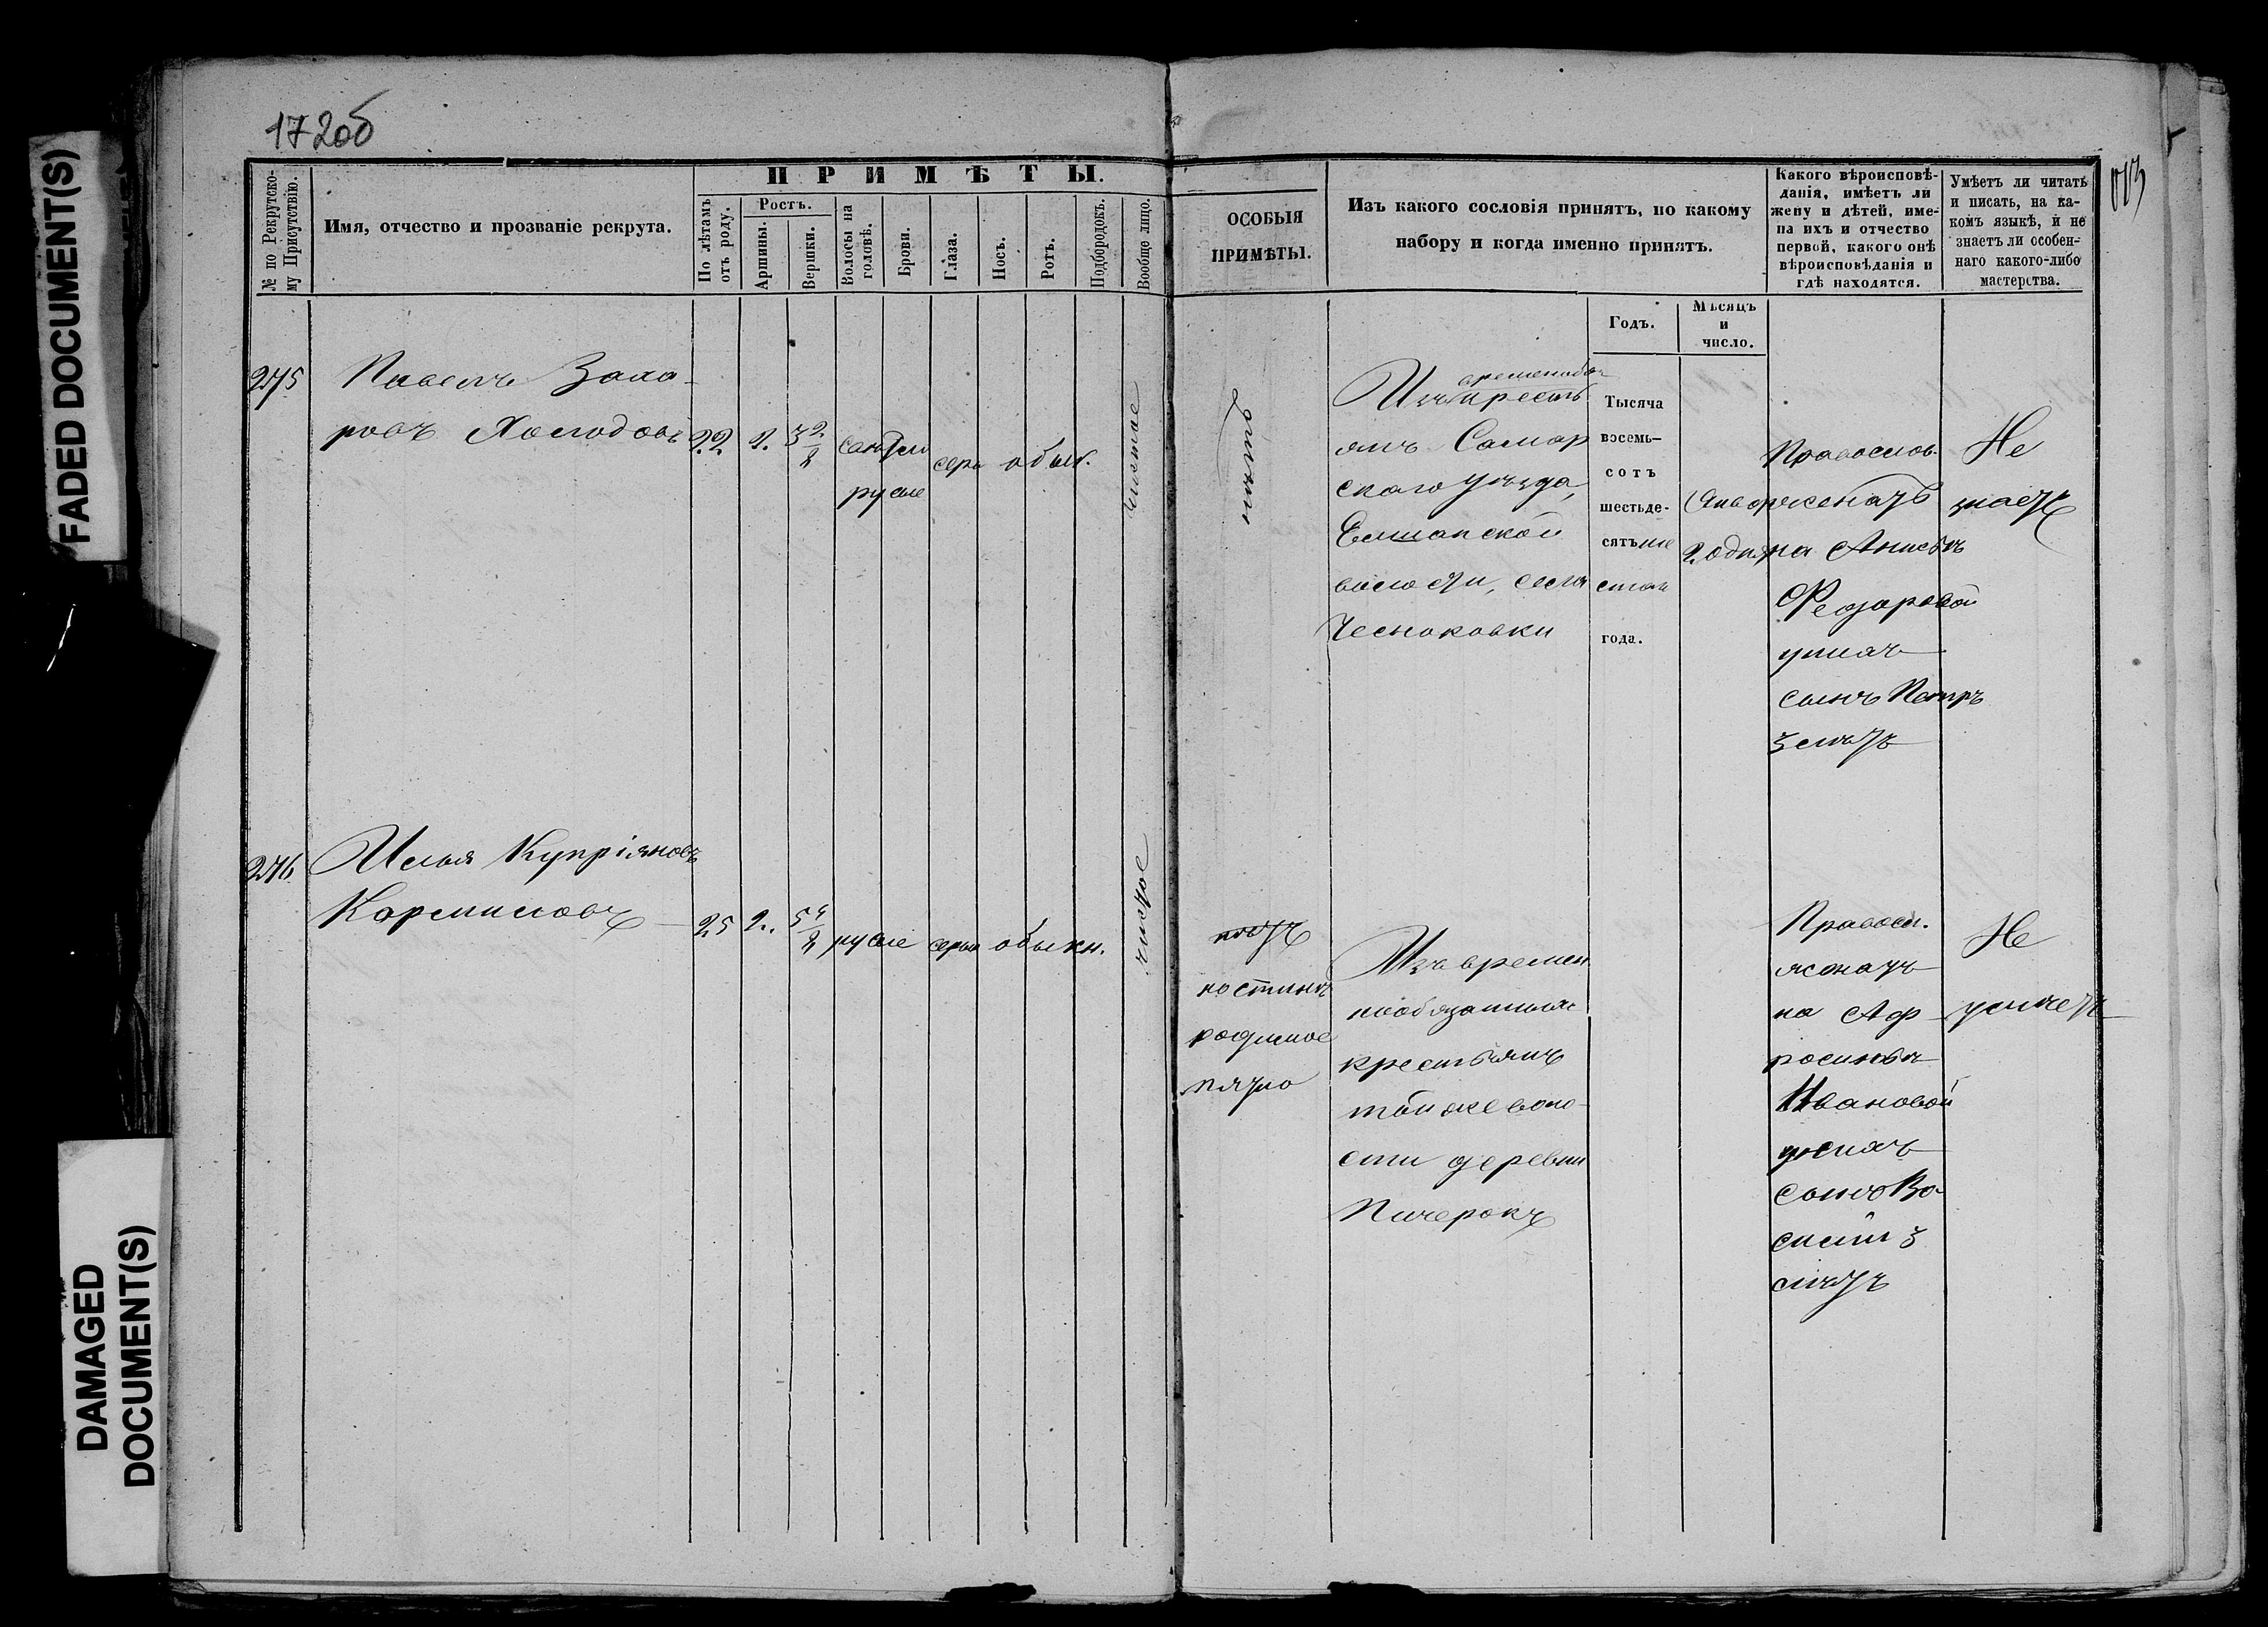 FADED DOCUMENT(S)
DAMAGED
DOCUMENT(S)
172об
173
№ по Рекрутско-
му Присутствію.
Имя, отчество и прозваніе рекрута.
ПРИМѢТЫ.
По лѣтамъ
отъ роду.
Ростъ.
Аршины.
Вершки.
Волосы на
головѣ.
Брови.
Глаза.
Носъ.
Ротъ.
Подбородокъ.
Вообще лицо.
ОСОБЫЯ
ПРИМѢТЫ.
Изъ какого сословія принятъ, по какому
набору и когда именно принятъ.
Какого вѣроисповѣ-
данія, имѣетъ ли
жену и дѣтей, име-
на ихъ и отчество
первой, какого онѣ
вѣроисповѣданія и
гдѣ находятся.
Умѣетъ ли читать
и писать, на ка-
комъ языкѣ, и не
знаетъ ли особен-
наго какого-либо
мастерства.
Годъ.
Мѣсяцъ
и
число.
275
Павелъ Заха-
ровъ Холодовъ
22
2.
3 2/8
русые
серы
обык.
чистое
Изъ временнообяз
крестъ
янъ Самар
скаго уѣзда,
Елшанской
волости, села
Чесноковки
Тысяча
восемь-
сотъ
шестьде-
сятъ
года.
Православ.
женатъ
на Анисьѣ
Федаровой
у нихъ
сынъ Петръ
3 лѣтъ
Не
знаетъ
276
Илья Купріяновъ
25
2.
5 4/8
русые
серые
обыкн.
чистое
родимое
пятно
Изъ времен
нообязанныхъ
крестьянъ
той же воло-
сти деревни
Пичерокъ
Правосл.
женатъ
на Аф
росиньѣ
Ивановой
у нихъ
сынъ Ва-
силій 3
лѣтъ
Не
умѣетъ